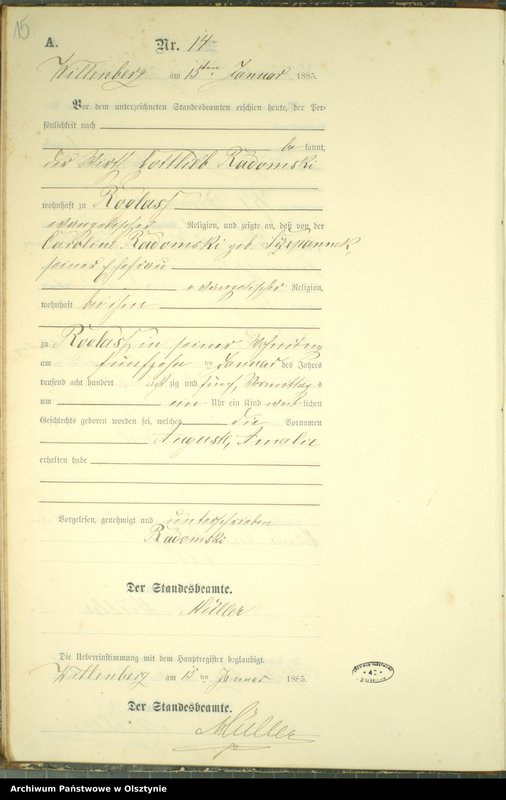 15
A.
Nr. 14.
Willenberg am 15ten Januar 1885.
Vor dem unterzeichneten Standesbeamten erschien heute, der Per-
sönlichkeit nach
be kannt,
der Wirth Gottlieb Radomski
wohnhaft zu Roglas
evangelischer Religion, und zeigte an, daß von der
Caroline Radomski geb.
seiner Ehefrau
evangelischer Religion,
wohnhaft bei ihm
zu Roglas in seiner Wohnung
am fünfzehn ten Januar des Jahres
tausend acht hundert acht zig und fünf, Vormittag s
um ein Uhr ein Kind weib lichen
Geschlechts geboren worden sei, welches die Vornamen
Auguste, Amalie
erhalten habe
Vorgelesen, genehmigt und unterschrieben
Radomski
Der Standesbeamte.
Müller
Die Uebereinstimmung mit dem Hauptregister beglaubigt.
Willenberg am 15 ten Januar 1885.
Der Standesbeamte.
Müller
Archiwum Państwowe w Olsztynie